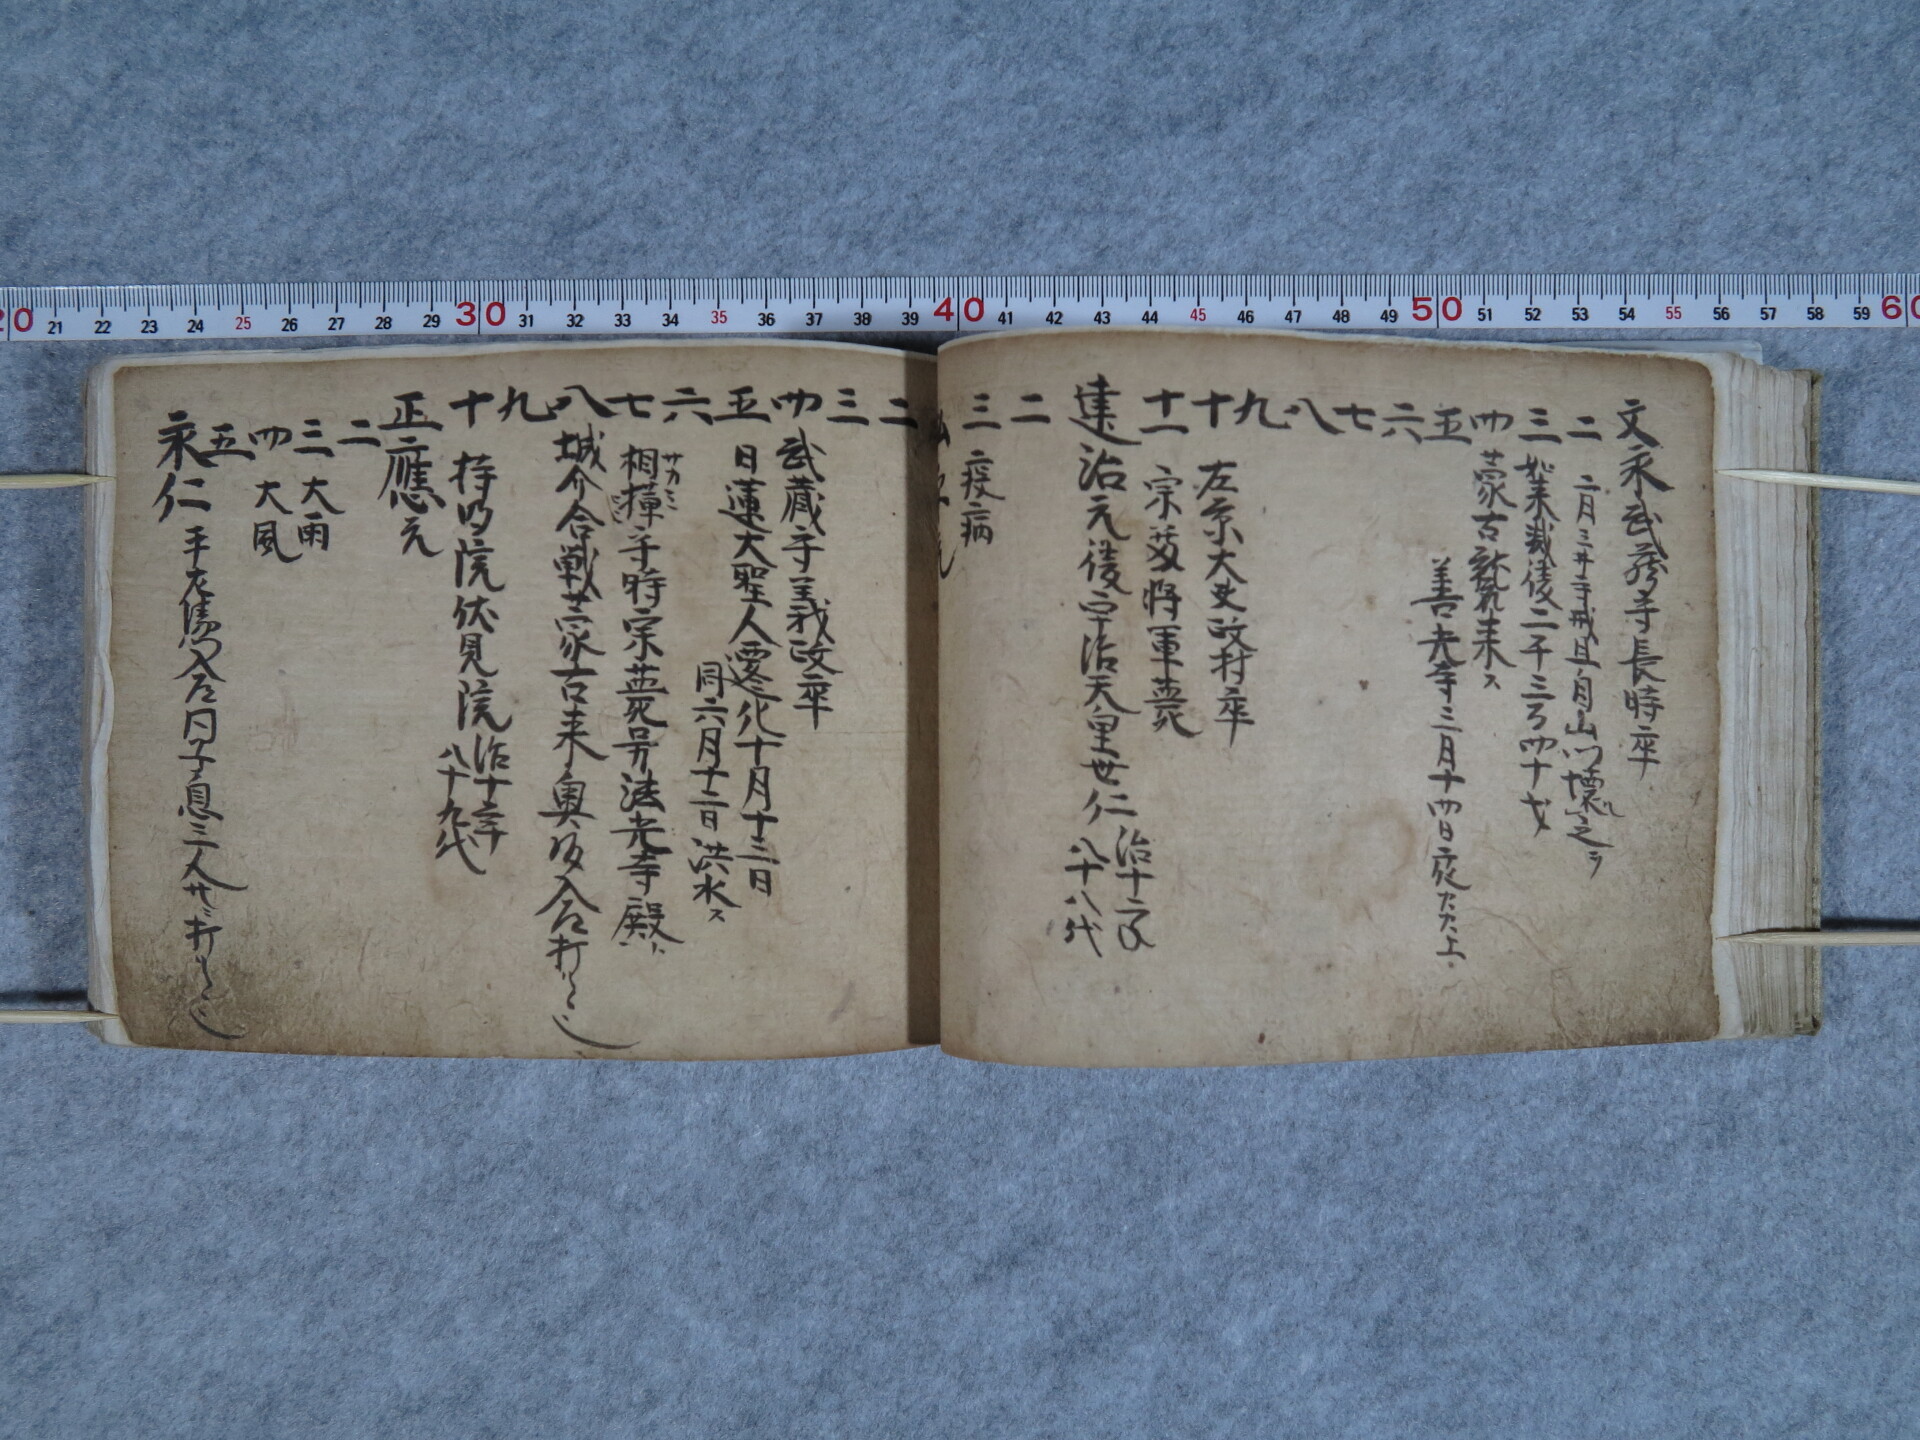 文永武蔵守長時卒
二 二月三井寺戒旦自山門壊之ラ
三 如来滅後二千二百四十才
四 蒙古牒来ス
五 善光寺三月十四日夜
六
七
八
九
十 左京大夫政村卒
十一 宗尊将軍薨
建治元後宇治天皇世仁 治十二
八十八代
二
三 疫病
二
三
四 武蔵守義政卒
五 日蓮大聖人遷化十月十三日
同六月十二日洪水ス
六
七 相摸守時宗薨号法光寺殿
サカミ
八 城介合戦蒙古来奥
九
十 持明院伏見院 治十
八十九代
正應元
二
三 大雨
四 大風
五
永仁 平左衛門入道円子息三人
20 21 22 23 24 25 26 27 28 29 30 31 32 33 34 35 36 37 38 39 40 41 42 43 44 45 46 47 48 49 50 51 52 53 54 55 56 57 58 59 60